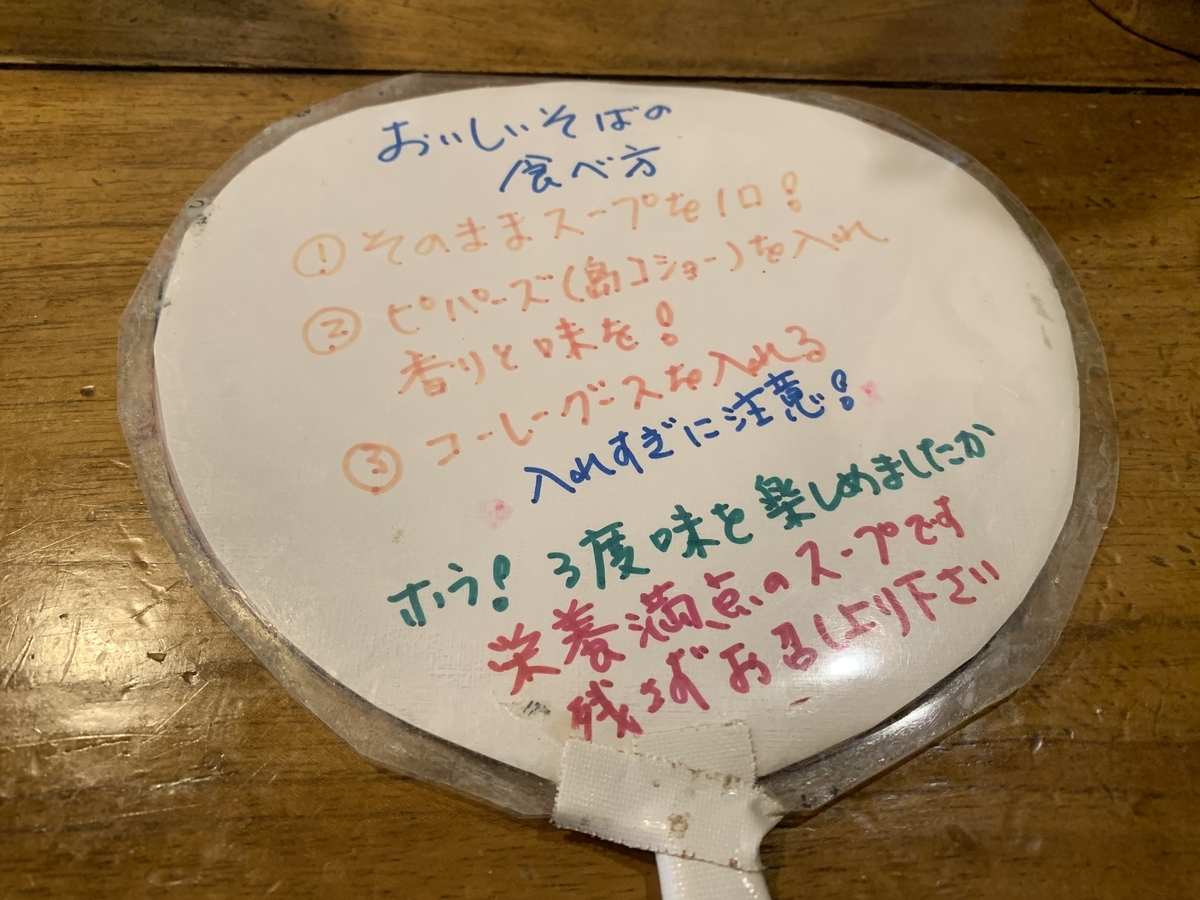 おいしいそばの
食べ方
① そのままスープを1口!
② ピパーズ(島コショー)を入れ
香りと味を!
③ コーレーグースを入れる
入れすぎに注意!
ホラ! 3度味を楽しめましたか
栄養満点のスープです
残さずお召し上り下さい